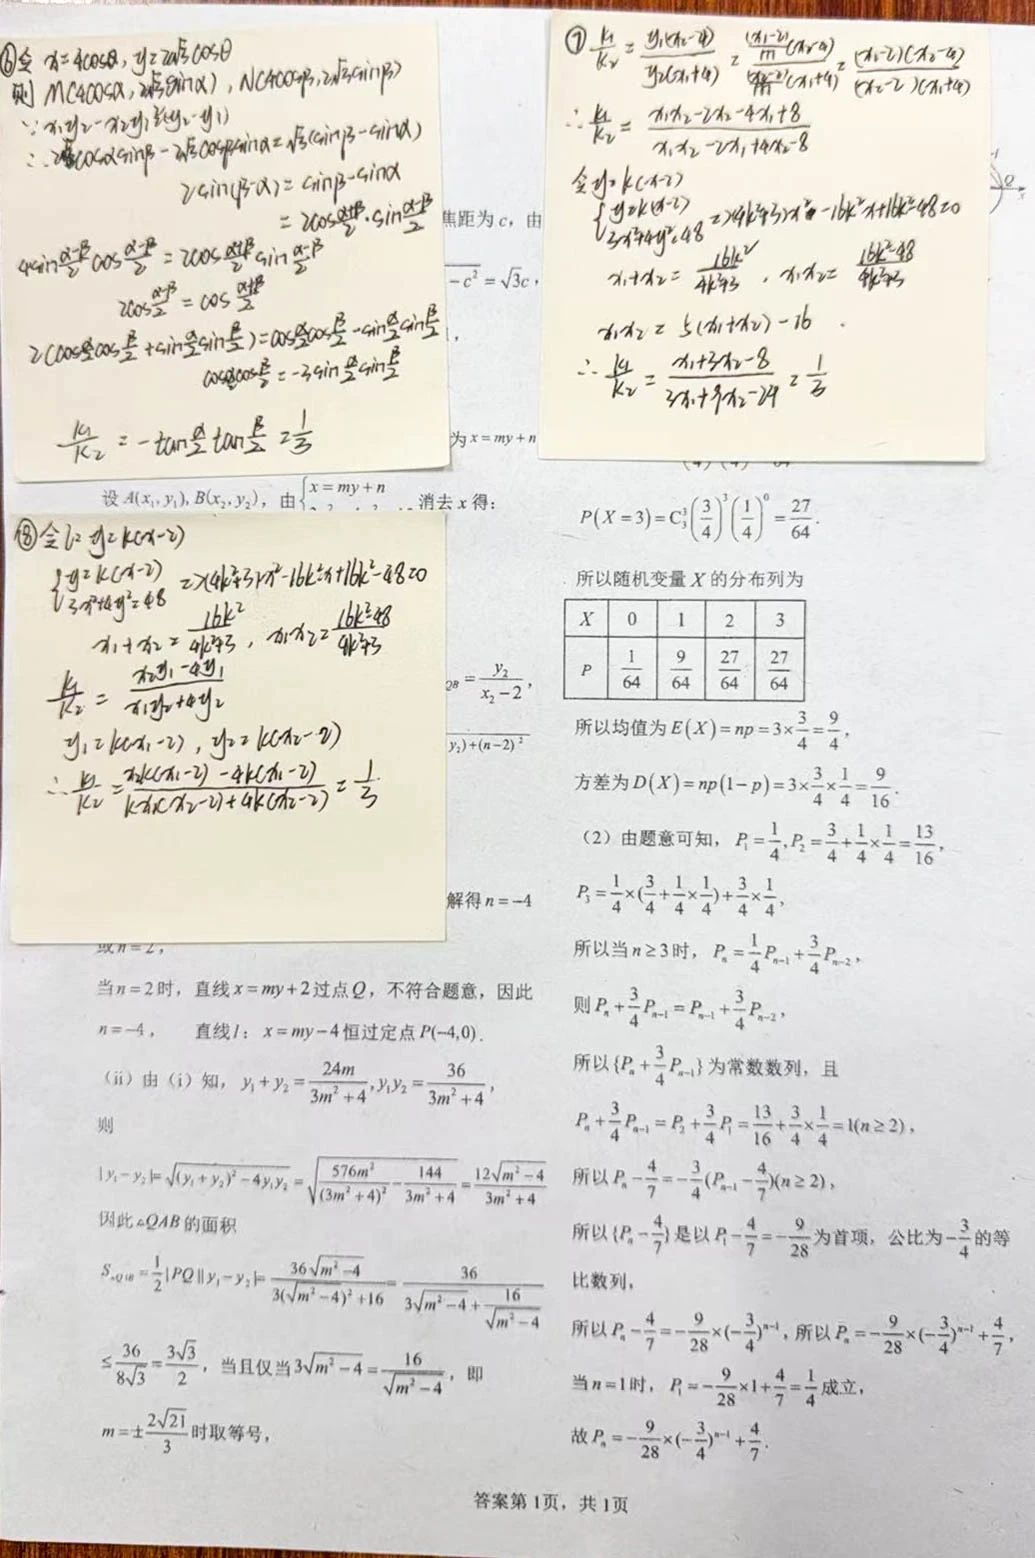 ⑥令 x=4cosθ, y=2√3cosθ
则 M(4cosα, 2√3sinα), N(4cosβ, 2√3sinβ)
2sin(β-α)= sinβ-sinα
= 2cos(α+β)/2·sin(α-β)/2
4sin(α-β)/2 cos(α-β)/2 = 2cos(α+β)/2 sin(α-β)/2
2cos(α-β)/2 = cos(α+β)/2
2(cosα/2cosβ/2+sinα/2sinβ/2)=cosα/2cosβ/2-sinα/2sinβ/2
cosα/2cosβ/2=-3sinα/2sinβ/2
k₁/k₂ = -tanα/2 tanβ/2 = 1/3
⑦ k₁/k₂ = y₁(x₂-4)/y₂(x₁+4) = (x₁-2)/m(x₂-4)/(x₂-2)/m(x₁+4) = (x₁-2)(x₂-4)/(x₂-2)(x₁+4)
∴ k₁/k₂ = (x₁x₂-2x₂-4x₁+8)/(x₁x₂-2x₁+4x₂-8)
令y=k(x-2)
{y=k(x-2) 3x²+4y²=48 ⇒(4k²+3)x²-16k²x+16k²-48=0
x₁+x₂= 16k²/(4k²+3), x₁x₂= (16k²-48)/(4k²+3)
x₁x₂ = 5(x₁+x₂)-16.
∴ k₁/k₂ = (x₁+3x₂-8)/(3x₁+9x₂-24) = 1/3
焦距为c，由
-c²=√3c，
为x=my+n
设A(x₁,y₁),B(x₂,y₂)，由{x=my+n 消去x得：
⑧令l: y=k(x-2)
{y=k(x-2) 3x²+4y²=48 ⇒(4k²+3)x²-16k²x+16k²-48=0
x₁+x₂= 16k²/(4k²+3), x₁x₂= (16k²-48)/(4k²+3)
k₁/k₂ = (x₂y₁-4y₁)/(x₁y₂+4y₂)
y₁=k(x₁-2), y₂=k(x₂-2)
∴ k₁/k₂ = (x₂k(x₁-2)-4k(x₁-2))/(kx₁(x₂-2)+4k(x₂-2)) = 1/3
QB=y₂/(x₂-2)，
y₂)+(n-2)²
解得n=-4
或n=2，
当n=2时，直线x=my+2过点Q，不符合题意，因此
n=-4， 直线l：x=my-4恒过定点P(-4,0).
（ii）由（i）知，y₁+y₂=24m/(3m²+4),y₁y₂=36/(3m²+4)，
则
|y₁-y₂|=√((y₁+y₂)²-4y₁y₂)=√(576m²/(3m²+4)²-144/(3m²+4))=12√(m²-4)/(3m²+4)
因此△QAB的面积
S△QAB=1/2|PQ||y₁-y₂|=36√(m²-4)/(3(√(m²-4))²+16)=36/(3√(m²-4)+16/√(m²-4))
≤36/(8√3)=3√3/2，当且仅当3√(m²-4)=16/√(m²-4)，即
m=±2√21/3时取等号，
P(X=3)=C₃³(3/4)³(1/4)⁰=27/64.
所以随机变量X的分布列为
X 0 1 2 3
P 1/64 9/64 27/64 27/64
所以均值为E(X)=np=3×3/4=9/4，
方差为D(X)=np(1-p)=3×3/4×1/4=9/16.
（2）由题意可知，P₁=1/4,P₂=3/4+1/4×1/4=13/16，
P₃=1/4×(3/4+1/4×1/4)+3/4×1/4，
所以当n≥3时，Pₙ=1/4Pₙ₋₁+3/4Pₙ₋₂，
则Pₙ+3/4Pₙ₋₁=Pₙ₋₁+3/4Pₙ₋₂，
所以{Pₙ+3/4Pₙ₋₁}为常数数列，且
Pₙ+3/4Pₙ₋₁=P₂+3/4P₁=13/16+3/4×1/4=1(n≥2)，
所以Pₙ-4/7=-3/4(Pₙ₋₁-4/7)(n≥2)，
所以{Pₙ-4/7}是以P₁-4/7=-9/28为首项，公比为-3/4的等
比数列，
所以Pₙ-4/7=-9/28×(-3/4)ⁿ⁻¹，所以Pₙ=-9/28×(-3/4)ⁿ⁻¹+4/7，
当n=1时，P₁=-9/28×1+4/7=1/4成立，
故Pₙ=-9/28×(-3/4)ⁿ⁻¹+4/7.
答案第1页，共1页